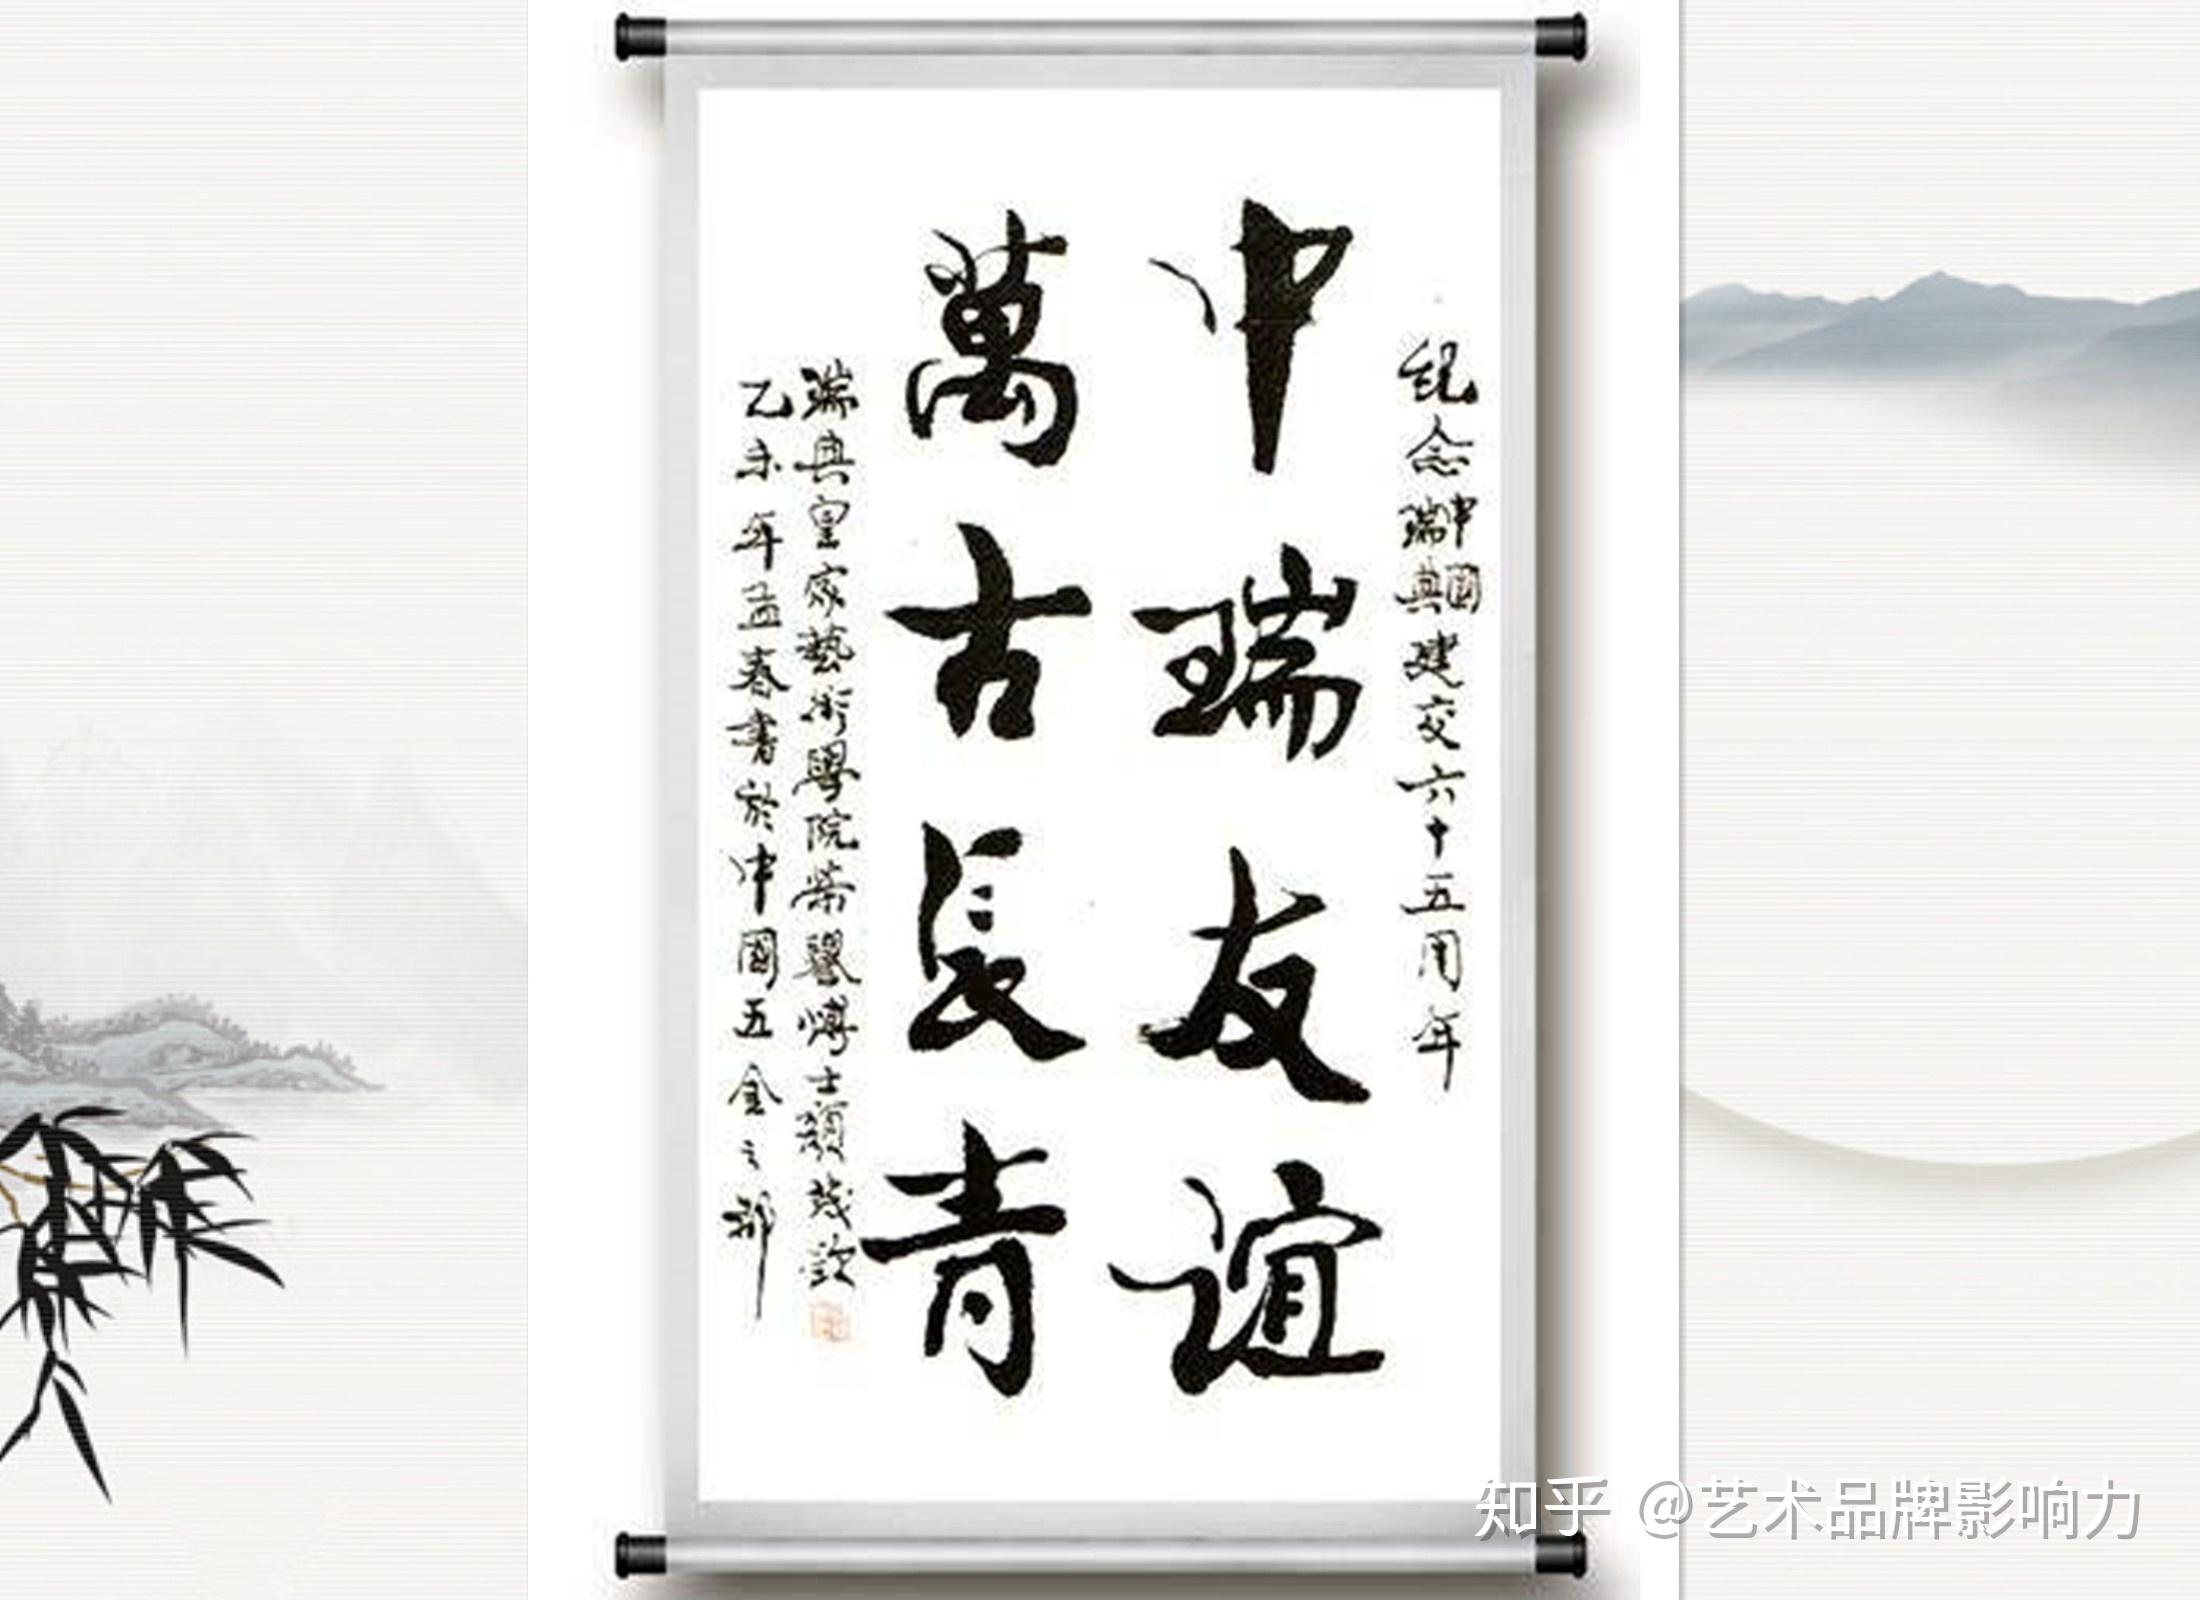 紀念中國瑞典建交六十五周年
中瑞友誼
萬古長青
瑞典皇家藝術學院榮譽博士顏
乙未年孟春書於中國五金之鄉
知乎 @艺术品牌影响力